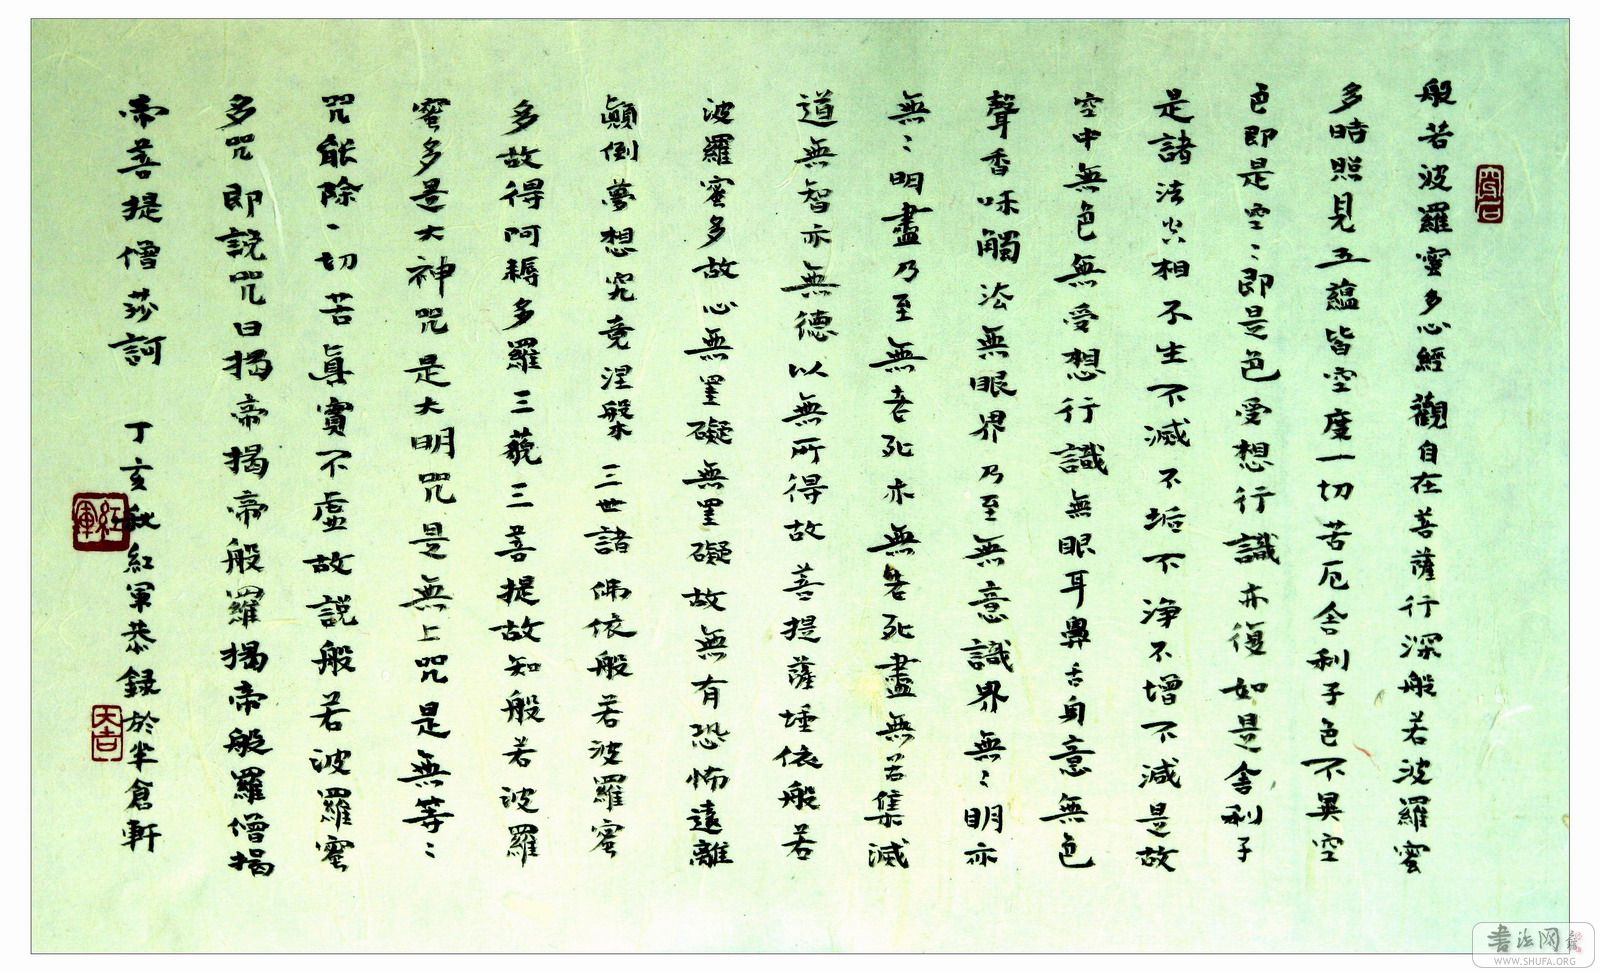 般若波羅蜜多心經觀自在菩薩行深般若波羅蜜
多時照見五蘊皆空度一切苦厄舍利子色不異空
色即是空〻即是色受想行識亦復如是舍利子
是諸法空相不生不滅不垢不淨不增不減是故
空中無色無受想行識無眼耳鼻舌身意無色
聲香味觸法無眼界乃至無意識界無〻明亦
無〻明盡乃至無老死亦無老死盡無苦集滅
道無智亦無德以無所得故菩提薩埵依般若
波羅蜜多故心無罣礙無罣礙故無有恐怖遠離
顛倒夢想究竟涅槃三世諸佛依般若波羅蜜
多故得阿耨多羅三藐三菩提故知般若波羅
蜜多是大神咒是大明咒是無上咒是無等〻
咒能除一切苦真實不虛故說般若波羅蜜
多咒即說咒曰揭帝揭帝般羅揭帝般羅僧揭
帝菩提僧莎訶 丁亥秋紅軍恭錄於半倉軒
紅軍
大吉
书法网
WWW.SHUFA.ORG